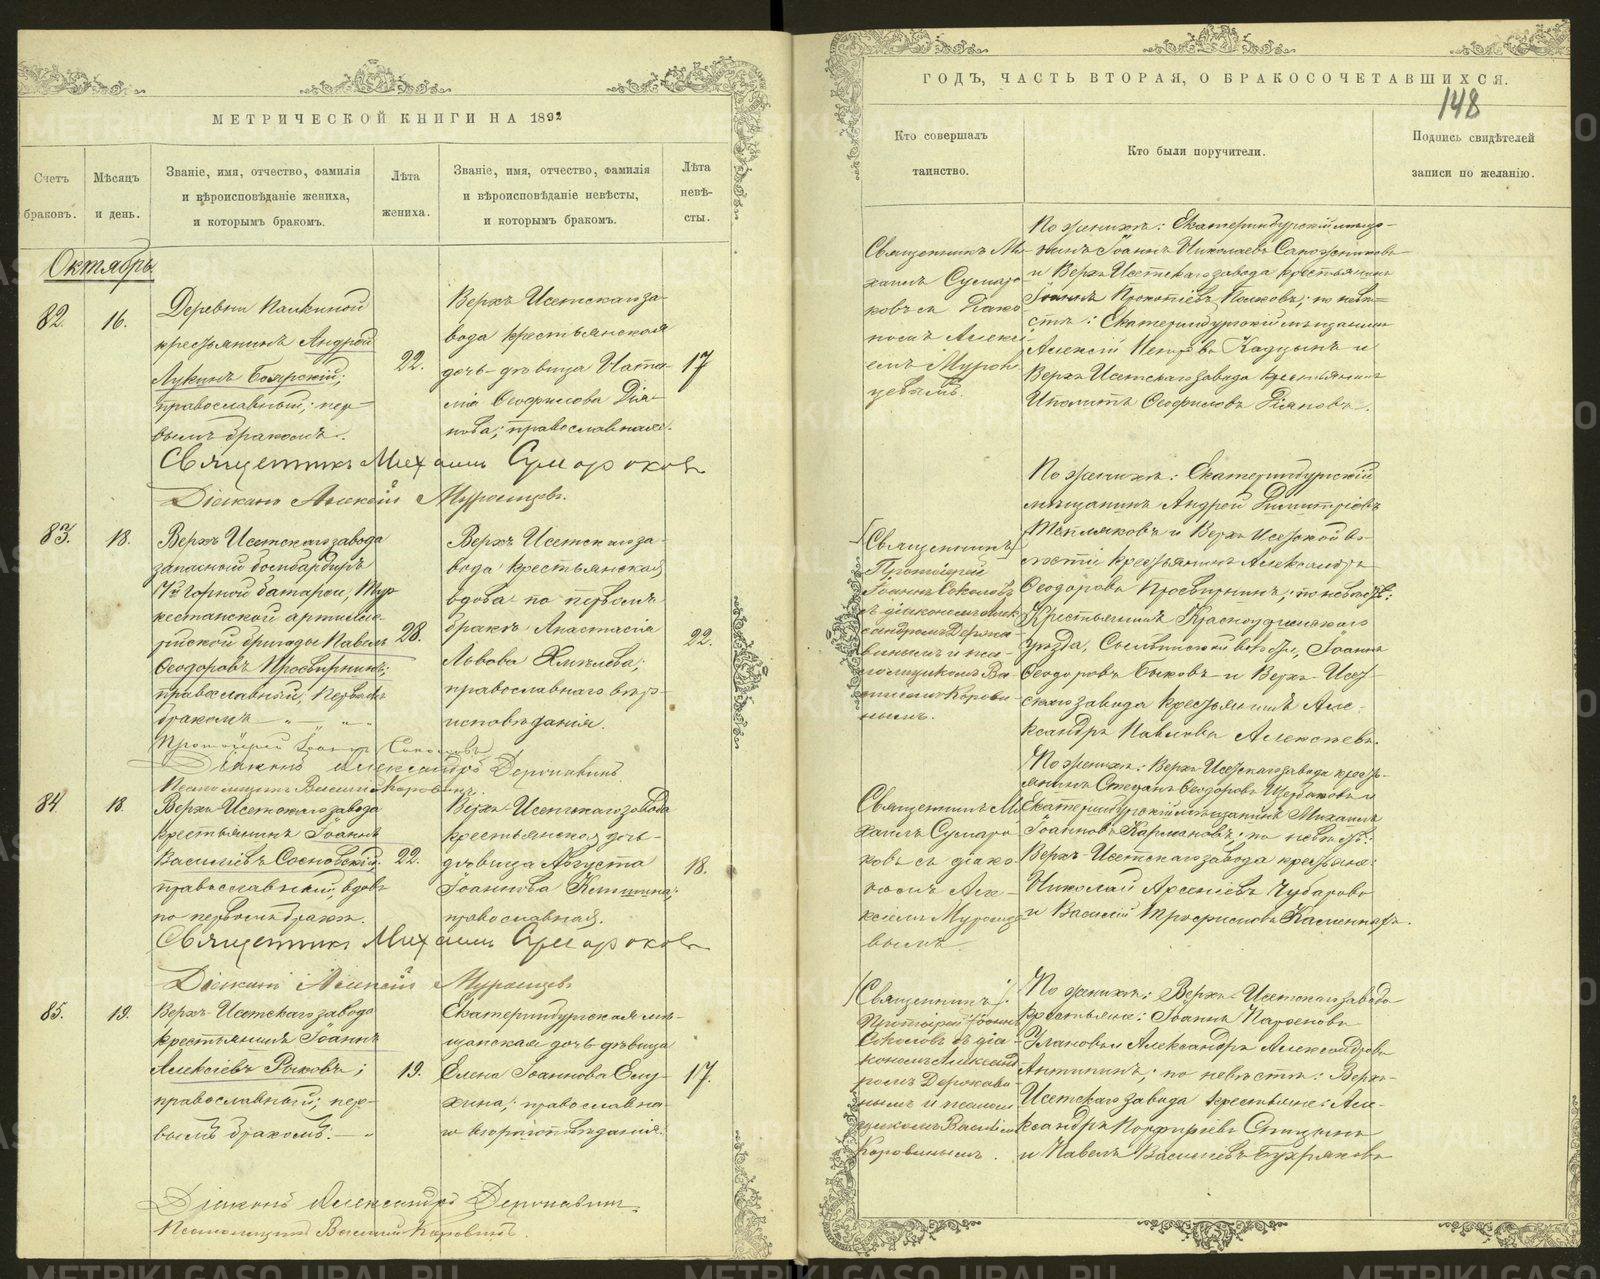 МЕТРИЧЕСКОЙ КНИГИ НА 1892
Счетъ браковъ.
Мѣсяцъ и день.
Званіе, имя, отчество, фамилія и вѣроисповѣданіе жениха, и которымъ бракомъ.
Лѣта жениха.
Званіе, имя, отчество, фамилія и вѣроисповѣданіе невѣсты, и которымъ бракомъ.
Лѣта невѣ- сты.
Октябрь
82.
16.
Деревни Палкиной
крестьянинъ Андрей
Лукинъ Боярскій;
православный; пер-
вымъ бракомъ.
22.
Верхъ Исетскаго за-
вода крестьянская
дочь девица Ната-
лія Ѳеофилова Дія-
нова; православная.
17
Священникъ Михаилъ Сумароковъ
Діаконъ Алексій Муромцевъ.
83.
18.
Верхъ Исетскаго завода
запасный бомбардиръ
горной батареи, Тур-
кестанской артилле-
рійской бригады Павелъ
Ѳеодоровъ Просвирнинъ;
православный, первымъ
бракомъ
28.
Верхъ Исетскаго за-
вода крестьянская
вдова по первомъ
бракѣ Анастасія
Львова
православнаго вѣро-
исповѣданія.
22.
Протоіерей Іоаннъ Соколовъ
Діаконъ Александръ Державинъ.
Псаломщикъ Василій Коровинъ.
84
18.
Верхъ-Исетскаго завода
крестьянинъ Іоаннъ
Василіевъ Сосновскій;
православный, вдовъ
по первомъ бракѣ.
22.
Верхъ-Исетскаго завода
крестьянская дочь-
дѣвица Августа
Іоаннова
православная.
18.
Священникъ Михаилъ Сумароковъ
Діаконъ Алексій Муромцевъ
85.
19.
Верхъ-Исетскаго завода
крестьянинъ Іоаннъ
Алексіевъ Рыковъ;
православный; пер-
вымъ бракомъ.
19.
Екатеринбургская мѣ-
щанская дочь-дѣвица
Елена Іоаннова Елу-
хина; православна-
го вѣроисповѣданія.
17.
Діаконъ Александръ Державинъ.
Псаломщикъ Василій Коровинъ.
ГОДЪ, ЧАСТЬ ВТОРАЯ, О БРАКОСОЧЕТАВШИХСЯ.
148
Кто совершалъ таинство.
Кто были поручители.
Подпись свидѣтелей записи по желанію.
Священникъ Ми-
хаилъ Сумаро-
ковъ съ діако-
номъ Алексі-
емъ Муром-
цевымъ.
По женихѣ: Екатеринбургскій мѣща-
нинъ Іоаннъ Николаевъ Сапожниковъ
и Верхъ Исетскаго завода крестьянинъ
Іоаннъ Прокопіевъ по невѣ-
стѣ: Екатеринбургскій мѣщанинъ
Алексій и
Верхъ Исетскаго завода крестьянинъ
Ипполитъ Ѳеофиловъ Діяновъ.
Священникъ
Протоіерей
Іоаннъ Соколовъ
съ діакономъ Алек-
сандромъ Держа-
винымъ и пса-
ломщикомъ Ва-
силіемъ Корови-
нымъ.
По женихѣ: Екатеринбургскій
мѣщанинъ Андрей Димитріевъ
Тепляковъ и Верхъ Исетской во-
лости крестьянинъ Александръ
Ѳеодоровъ Просвирнинъ; по невѣстѣ:
Крестьянинъ Красноуфимскаго
уѣзда, волости, Іоаннъ
Ѳеодоровъ Быковъ и Верхъ-Исет-
скаго завода крестьянинъ Але-
ксандръ Павловъ Алексѣевъ.
Священникъ Ми-
хаилъ Сумаро-
ковъ съ діако-
номъ Але-
ксіемъ Муромце-
вымъ.
По женихѣ: Верхъ-Исетскаго завода кресть-
янинъ Стефанъ Ѳеодоровъ Щербаковъ и
Екатеринбургскій мѣщанинъ Михаилъ
Іоанновъ по невѣстѣ:
Верхъ-Исетскаго завода крестьяне:
Николай Арсеніевъ Чубаровъ
и Василій Трофимовъ
Священникъ
Протоіерей Іоаннъ
Соколовъ съ діа-
кономъ Александ-
ромъ Держави-
нымъ и псалом-
щикомъ Василіемъ
Коровинымъ.
По женихѣ: Верхъ-Исетскаго завода
крестьяне: Іоаннъ Парѳеновъ
Улановъ и Александръ Александровъ
Антипинъ; по невѣстѣ: Верхъ-
Исетскаго завода крестьяне: Але-
ксандръ Порфиріевъ Спицынъ
и Павелъ Васильевъ